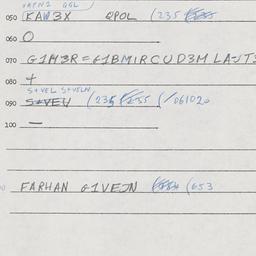 050 KAW3X QPOL (235
060 O
070 G1M3R=G1BMIRCUD3M LAJT3
080 +
S+VEL S+VELN
090 S+VEU (235 (/061020
100 —
FARHAN G1VEJN (653